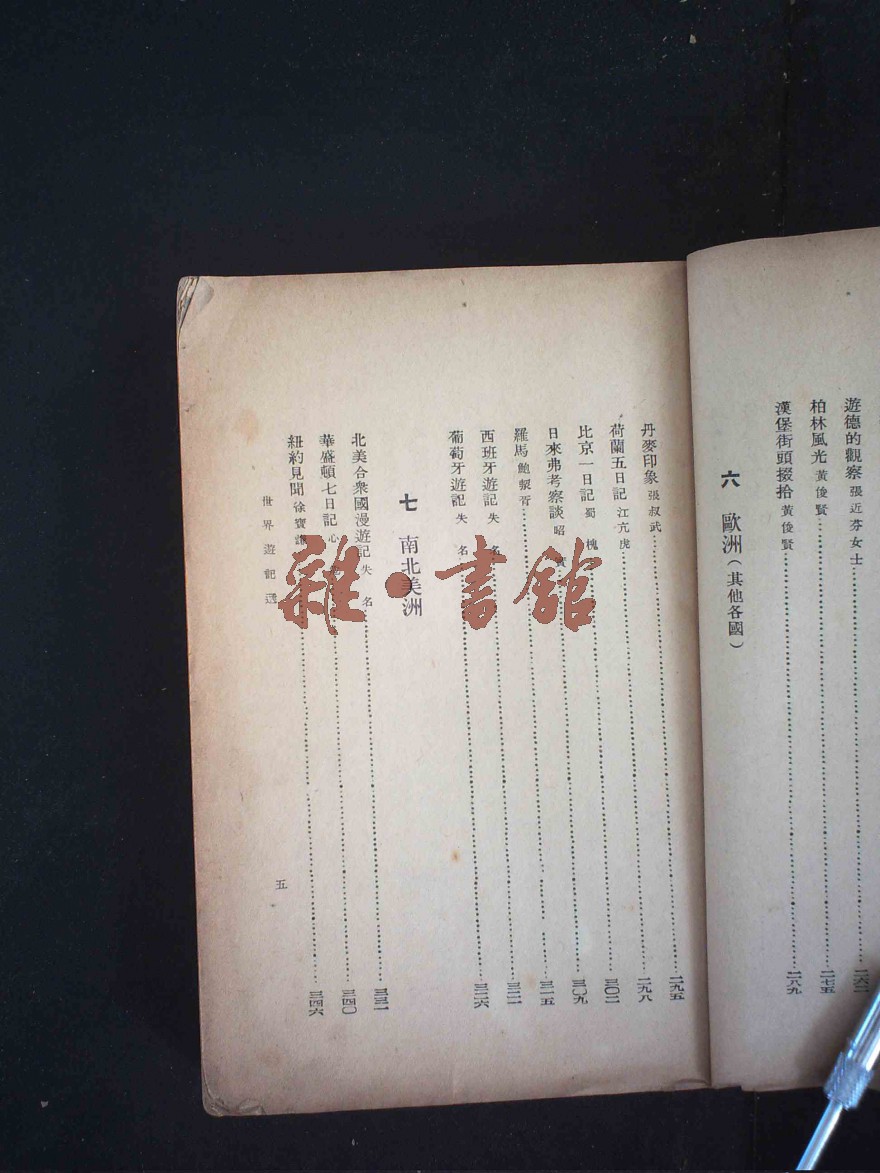 遊德的觀察 張近芬女士 二六二
柏林風光 黃俊賢 二七五
漢堡街頭掇拾 黃俊賢 二八九
六 歐洲（其他各國）
丹麥印象 張叔武 二九五
荷蘭五日記 江亢虎 二九八
比京一日記 蜀 槐 三〇二
日來弗考察談 昭 三〇九
羅馬 鮑 三一五
西班牙遊記 失 名 三二二
葡萄牙遊記 失 名 三二六
七 南北美洲
北美合衆國漫遊記 失 名 三三一
華盛頓七日記 心 三四〇
紐約見聞 徐寶謙 三四六
世界遊記選
五
雜·書館